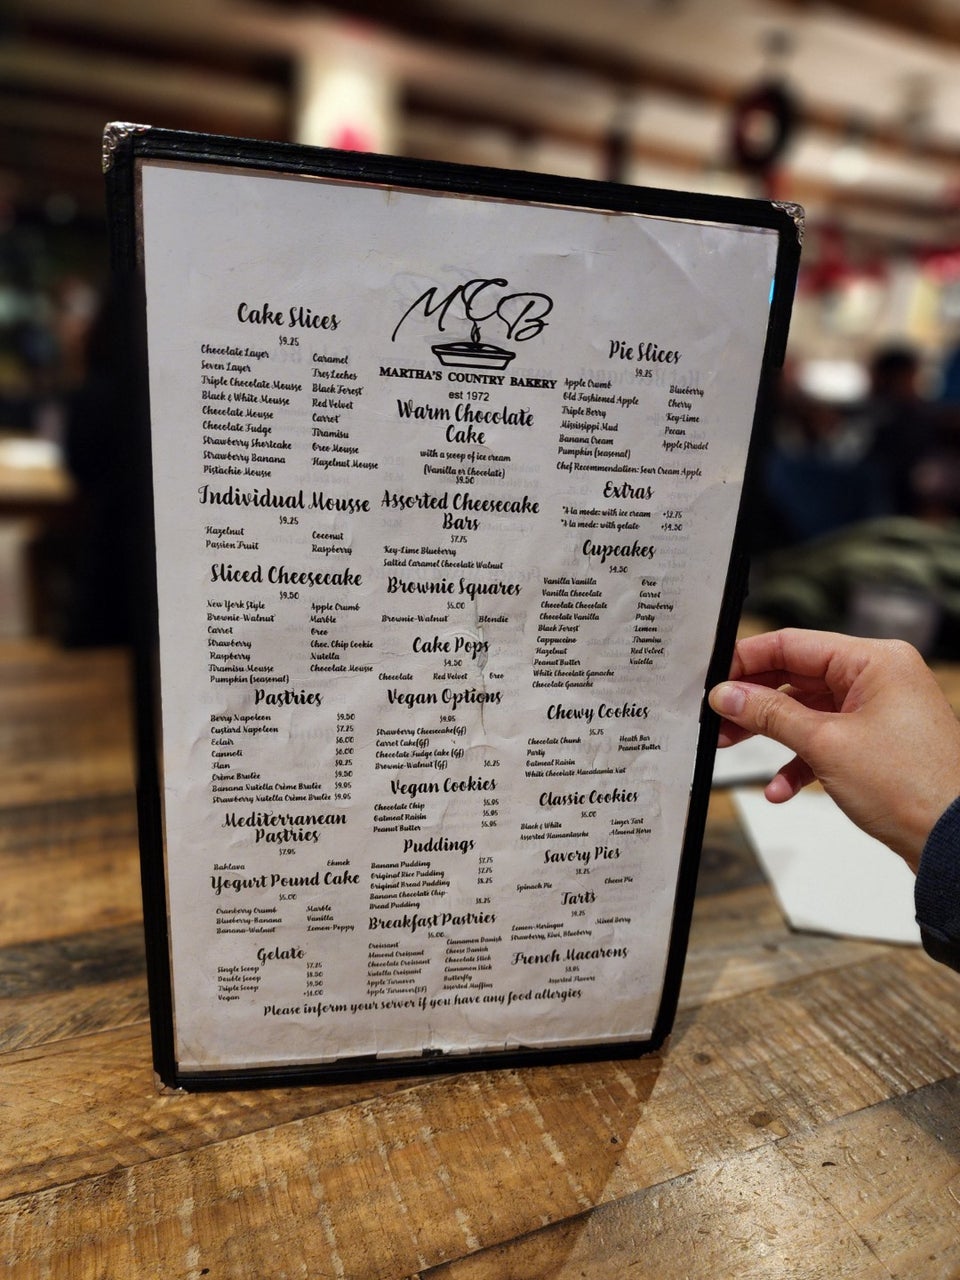 Cake Slices
$9.25
Chocolate Layer
Seven Layer
Triple Chocolate Mousse
Black & White Mousse
Chocolate Mousse
Chocolate Fudge
Strawberry Shortcake
Strawberry Banana
Pistachio Mousse
Caramel
Tres Leches
Black Forest
Red Velvet
Carrot
Tiramisu
Oreo Mousse
Hazelnut Mousse
Individual Mousse
$9.25
Hazelnut
Passion Fruit
Coconut
Raspberry
Sliced Cheesecake
$9.50
New York Style
Brownie-Walnut
Carrot
Strawberry
Raspberry
Tiramisu Mousse
Pumpkin (seasonal)
Apple Crumb
Marble
Oreo
Choc. Chip Cookie
Nutella
Chocolate Mousse
Pastries
Berry Napoleon $9.50
Custard Napoleon $7.25
Eclair $6.00
Cannoli $6.00
Flan $8.25
Crème Brulée $9.50
Banana Nutella Crème Brulée $9.95
Strawberry Nutella Crème Brulée $9.95
Mediterranean
Pastries
$7.95
Baklava Ekmek
Yogurt Pound Cake
$5.00
Cranberry Crumb
Blueberry-Banana
Banana-Walnut
Marble
Vanilla
Lemon-Poppy
Gelato
Single Scoop $7.25
Double Scoop $8.50
Triple Scoop $9.50
Vegan +$1.00
MCB
MARTHA'S COUNTRY BAKERY
est 1972
Warm Chocolate
Cake
with a scoop of ice cream
(Vanilla or Chocolate)
$9.50
Assorted Cheesecake
Bars
$7.75
Key-Lime Blueberry
Salted Caramel Chocolate Walnut
Brownie Squares
$5.00
Brownie-Walnut Blondie
Cake Pops
$4.50
Chocolate Red Velvet Oreo
Vegan Options
$9.95
Strawberry Cheesecake(Gf)
Carrot Cake(Gf)
Chocolate Fudge Cake (Gf)
Brownie-Walnut(Gf) $6.25
Vegan Cookies
Chocolate Chip $5.95
Oatmeal Raisin $5.95
Peanut Butter $5.95
Puddings
Banana Pudding $7.75
Original Rice Pudding $7.75
Original Bread Pudding $8.25
Banana Chocolate Chip
Bread Pudding $8.25
Breakfast Pastries
$5.00
Croissant
Almond Croissant
Chocolate Croissant
Nutella Croissant
Apple Turnover
Apple Turnover(SF)
Cinnamon Danish
Cheese Danish
Chocolate Stick
Cinnamon Stick
Butterfly
Assorted Muffins
Pie Slices
$9.25
Apple Crumb
Old Fashioned Apple
Triple Berry
Mississippi Mud
Banana Cream
Pumpkin (seasonal)
Blueberry
Cherry
Key-Lime
Pecan
Apple Strudel
Chef Recommendation: Sour Cream Apple
Extras
*A la mode: with ice cream +$2.75
*A la mode: with gelato +$4.50
Cupcakes
$4.50
Vanilla Vanilla
Vanilla Chocolate
Chocolate Chocolate
Chocolate Vanilla
Black Forest
Cappuccino
Hazelnut
Peanut Butter
White Chocolate Ganache
Chocolate Ganache
Oreo
Carrot
Strawberry
Party
Lemon
Tiramisu
Red Velvet
Nutella
Chewy Cookies
$5.75
Chocolate Chunk
Party
Oatmeal Raisin
White Chocolate Macadamia Nut
Heath Bar
Peanut Butter
Classic Cookies
$6.00
Black & White
Assorted Hamantasche
Linzer Tart
Almond Horn
Savory Pies
$8.25
Spinach Pie Cheese Pie
Tarts
$9.25
Lemon-Meringue
Strawberry, Kiwi, Blueberry
Mixed Berry
French Macarons
$3.95
Assorted Flavors
Please inform your server if you have any food allergies